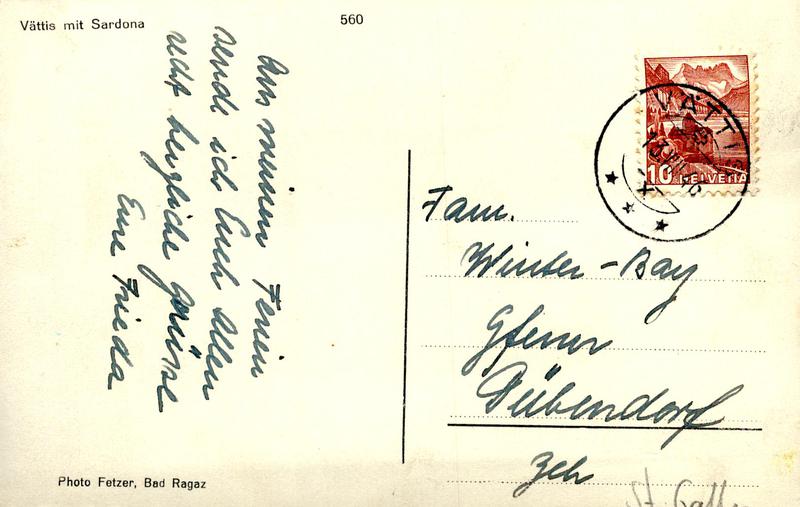 Vättis mit Sardona
560
Aus meinen Ferien
sende ich Euch allen
recht herzliche Grüsse
Eure Frieda
VÄTTIS
10 HELVETIA
Fam.
Winter-Bay
Gfenn
Dübendorf
Zch
Photo Fetzer, Bad Ragaz
St. Gallen